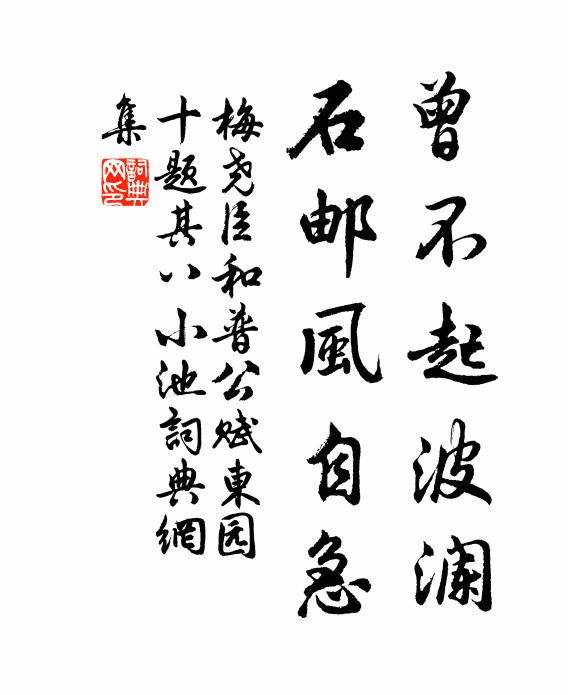 曾不起波澜
石邮風自急
梅尧臣和普公赋東园
十题其八小池詞典網
集
詞典网印